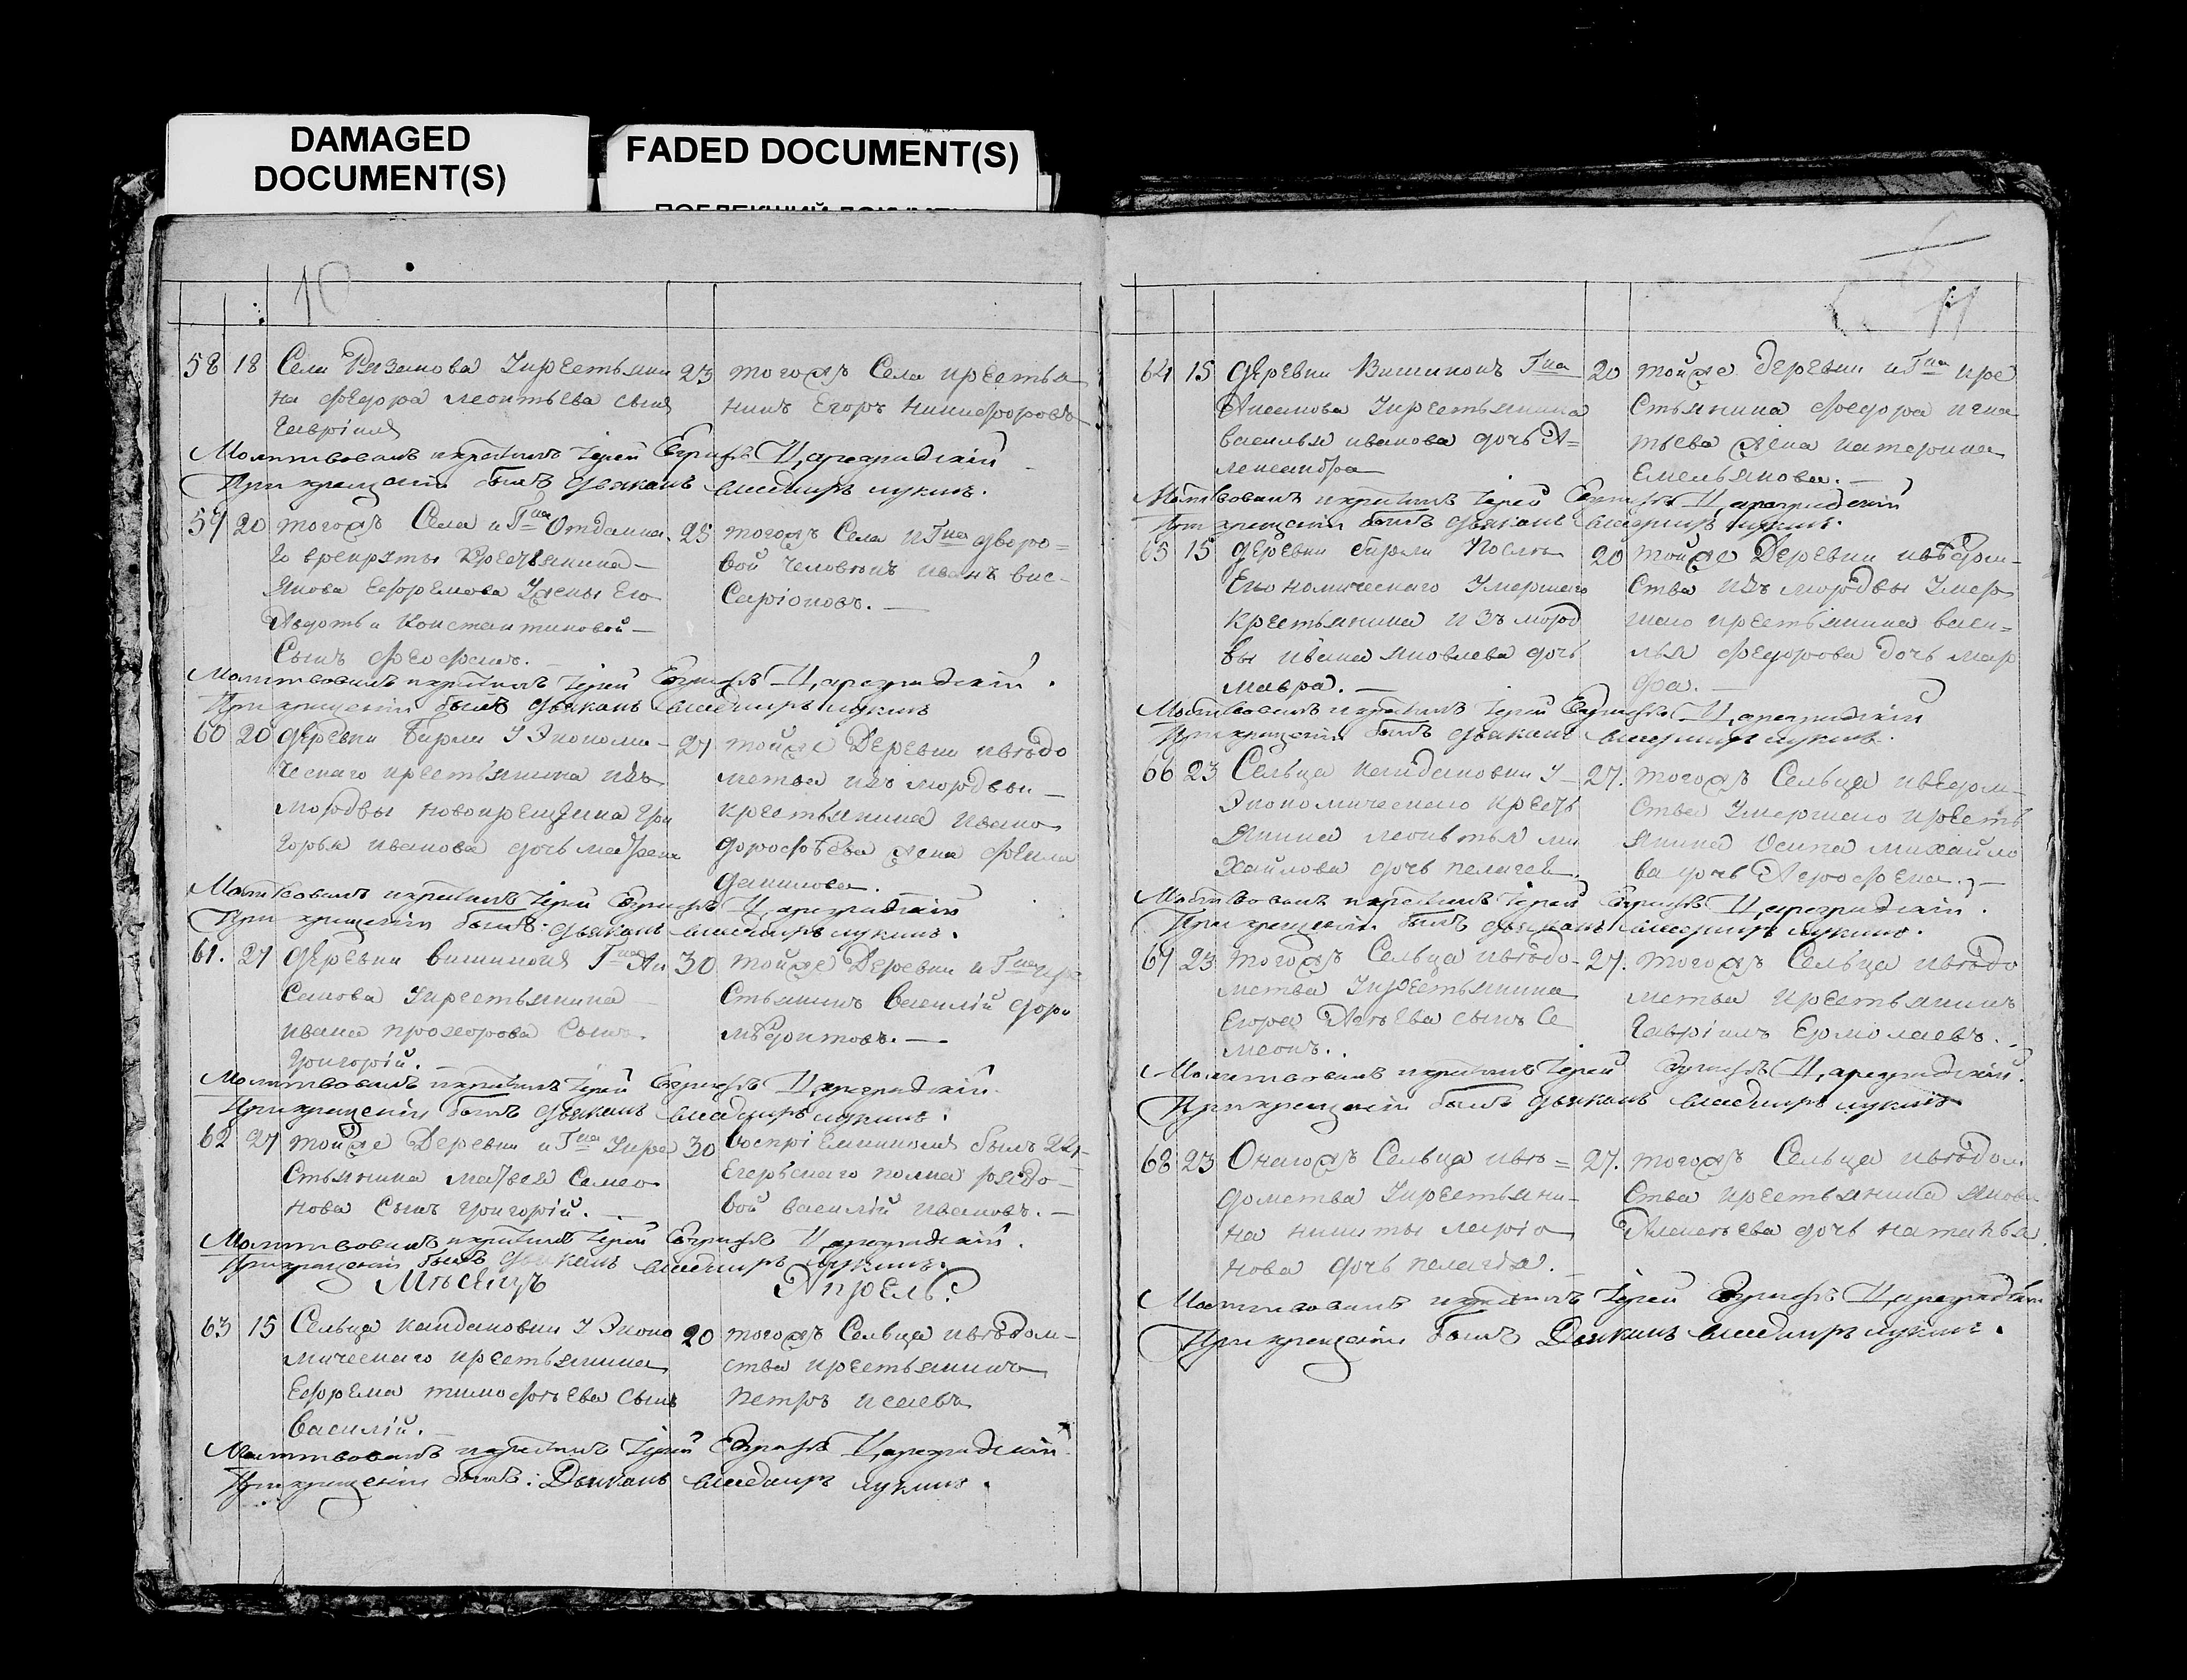 DAMAGED
DOCUMENT(S)
FADED DOCUMENT(S)
10
58 18 Села Рязанова У крестьяни
на Федора леонтьева сынъ
Гавріилъ
23 того жъ Села крестья
нинъ Егоръ Никифоровъ
Молитвовалъ и крестилъ Іерей Цареградскій
При крещеніи былъ Дьяконъ владимиръ лукинъ.
59 20 того жъ Села и Гна Отданна
го врекруты Крестьянина
Якова Ефремова Ужены Его
Авдотьи Константиновой
Сынъ Феофанъ.
25 того жъ Села и Гна дворо=
вой человѣкъ Иванъ вис-
Саріоновъ.
Молитвовалъ и крестилъ Іерей Цареградскій.
При крещеніи былъ дьяконъ владимиръ лукинъ
60 20 деревни Бирли У Экономи-
ческаго крестьянина изъ
мордвы новокрещена Гри
горья иванова дочь матрена
27 той же Деревни ивѣдо
метва изъ мордвы
крестьянина ивана
дорофѣева жена Фекла
данилова.
Молитвовалъ и крестилъ Іерей Цареградскій
При крещеніи былъ: дьяконъ владимиръ лукинъ.
61. 27 деревни вишинокъ Гна Ан
Сенова У крестьянина
ивана прохорова Сынъ
Григорій.
30 той же Деревни и Гна кре
Стьянинъ Василій доро
мѣдонтовъ.
Молитвовалъ и крестилъ Іерей Цареградскій.
При крещеніи былъ дьяконъ владимиръ лукинъ.
62 27 той же Деревни и Гна У кре
Стьянина матвея Семео
нова Сынъ григорій.
30 воспріемникомъ былъ 22г-
Егерьскаго полка рядо-
вой василій ивановъ.
Молитвовалъ и крестилъ Іерей Цареградскій.
При крещеніи былъ дьяконъ владимиръ лукинъ.
Мѣсяцъ Апрель.
63 15 Сельца кайдановки У Эконо
мическаго крестьянина
Ефрема тимофѣева сынъ
василій.
20 того жъ Сельца ивѣдом-
ства крестьянинъ
петръ исаевъ
Молитвовалъ и крестилъ Іерей Цареградскій.
При крещеніи былъ: Дьяконъ владимиръ лукинъ.
11
64 15 деревни Вишинокъ Гна
Аксенова У крестьянина
василья иванова дочь А=
лександра
20 той же деревни и Гна кре
Стьянина федора игна
тьева жена катерина
Емельянова.
Молитвовалъ и крестилъ Іерей Цареградскій
При крещеніи былъ дьяконъ владимиръ лукинъ.
65 15 деревни бирли
Економическаго Умершаго
крестьянина изъ морд
вы ивана яковлева дочь
мавра.
20 той же Деревни ивѣдом-
Ства изъ мордвы Умер
шаго крестьянина васи=
лья Федорова дочь мар
фа.
Молитвовалъ и крестилъ Іерей Цареградскій
При крещеніи былъ дьяконъ владимиръ лукинъ.
66 23 Сельца кайдановки У
Экономическаго крестъ
янина леонтья ми
хайлова дочь пелагея
27. того жъ Сельца ивѣдом-
Ства Умершаго крестъ
янина Осипа михайло
ва дочь Агрофена.
Молитвовалъ и крестилъ Іерей Цареградскій.
При крещеніи былъ дьяконъ владимиръ лукинъ.
67 23 того жъ Сельца ивѣдо-
метва У крестьянина
Егора сынъ Се
меонъ.
27. того жъ Сельца ивѣдо
метва крестьянинъ
Гаврилъ Ермолаевъ.
Молитвовалъ и крестилъ Іерей Цареградскій.
При крещеніи былъ дьяконъ владимиръ лукинъ
68 23 Онаго жъ Сельца ивѣ=
дометва У крестьяни-
на никиты ларіо
нова дочь пелагея.
27. того жъ Сельца ивѣдом
Ства крестьянина якова
Алексѣева дочь наталья.
Молитвовалъ и крестилъ Іерей Цареградскій
При крещеніи былъ Дьяконъ владимиръ лукинъ.